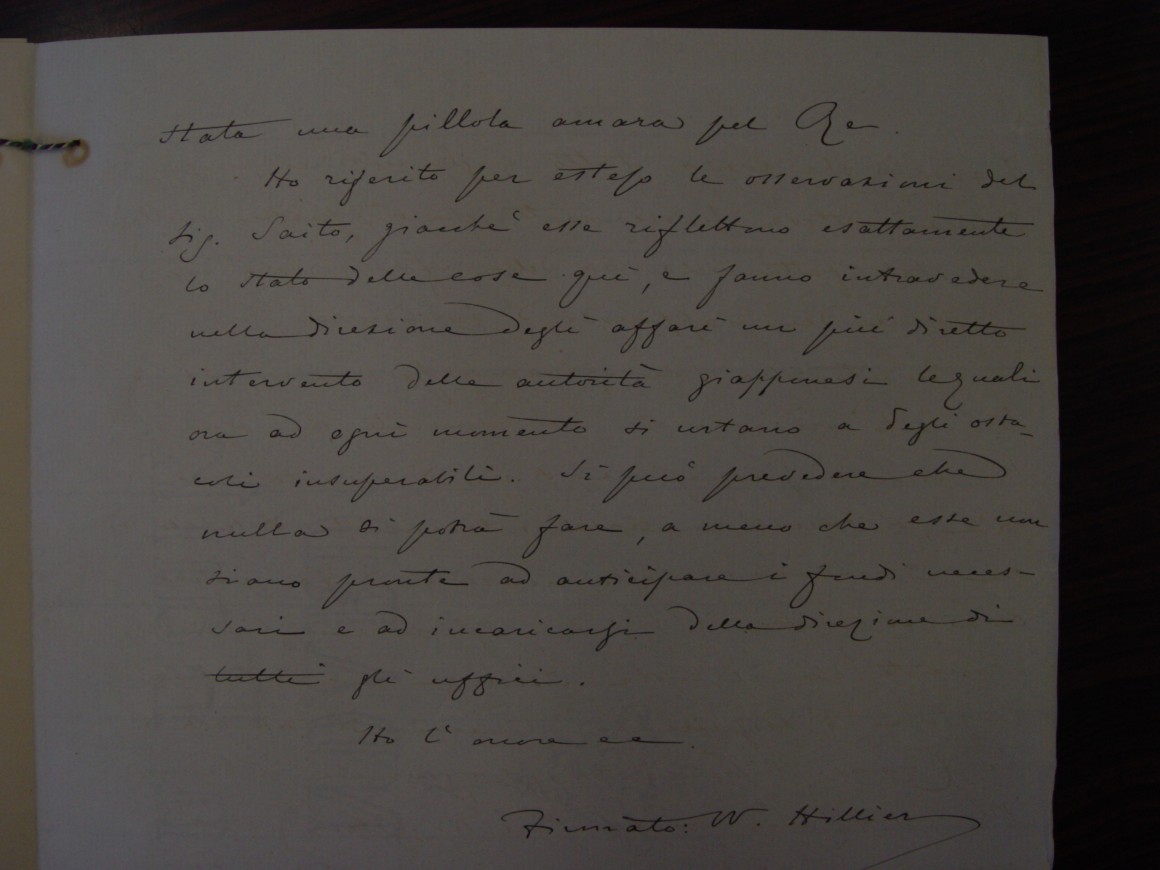 stata una pillola amara pel Re.
Ho riferito per esteso le osservazioni del
sig. Saito, giacchè esse riflettono esattamente
lo stato delle cose quì, e fanno intravedere
nella direzione degli affari un più diretto
intervento delle autorità giapponesi le quali
ora ad ogni momento si urtano a degli osta-
coli insuperabili. Si può prevedere che
nulla si potrà fare, a meno che esse non
siano pronte ad anticipare i fondi neces-
sari e ad incaricarsi della direzione di
tutti gli uffici.
Ho l'onore ec
Firmato: W. Hillier